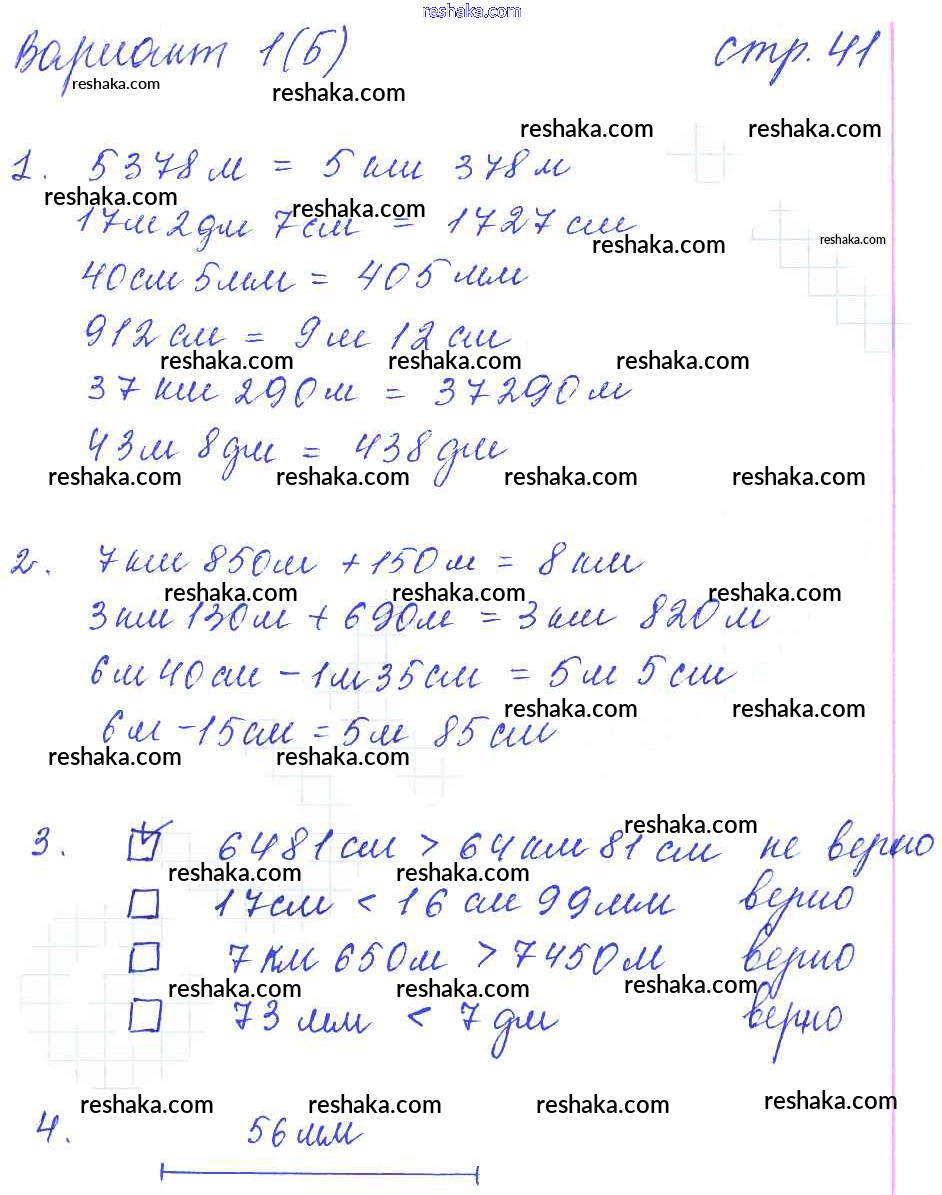 reshaka.com
Вариант 1(Б) стр. 41
reshaka.com
reshaka.com
reshaka.com reshaka.com
1. 5378 м = 5 км 378 м
reshaka.com reshaka.com
17 м 2 дм 7 см = 1727 см
reshaka.com reshaka.com
40 см 5 мм = 405 мм
912 см = 9 м 12 см
reshaka.com reshaka.com reshaka.com
37 км 290 м = 37290 м
43 м 8 дм = 438 дм
reshaka.com reshaka.com reshaka.com reshaka.com
2. 7 км 850 м + 150 м = 8 км
reshaka.com reshaka.com reshaka.com
3 км 130 м + 690 м = 3 км 820 м
6 м 40 см - 1 м 35 см = 5 м 5 см
reshaka.com reshaka.com
6 м - 15 см = 5 м 85 см
reshaka.com reshaka.com
reshaka.com
3. 6481 см > 64 км 81 см не верно
reshaka.com reshaka.com
17 см < 16 см 99 мм верно
7 км 650 м > 7450 м верно
reshaka.com reshaka.com reshaka.com
73 мм < 7 дм верно
reshaka.com reshaka.com reshaka.com reshaka.com
4. 56 мм